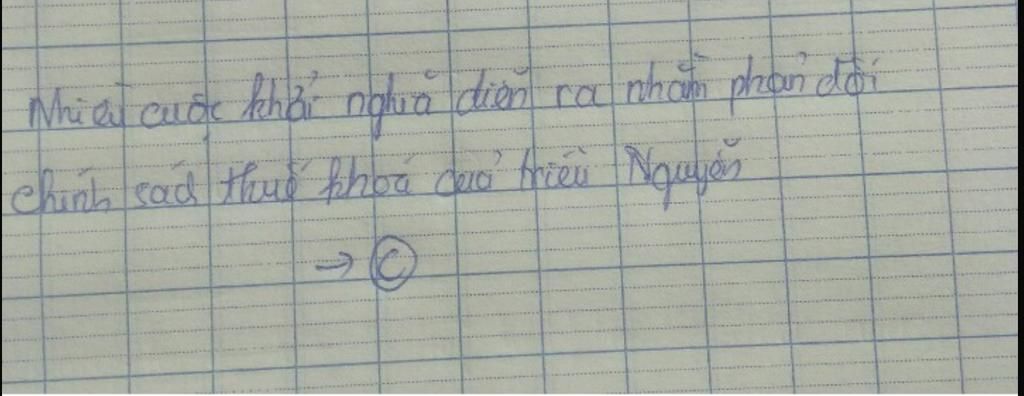 Nhiều cuộc khởi nghĩa diễn ra nhằm phản đối
chính sách thuế khoá của triều Nguyễn
→ C